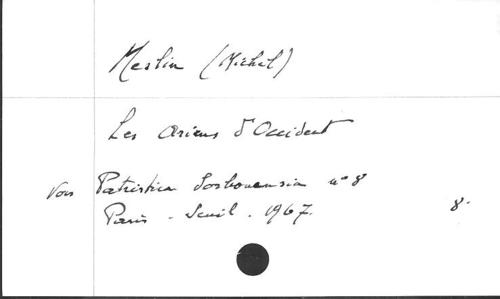 Meslin (Michel)
Les Ariens d'Occident
Voir Patristica Sorbonensia n° 8
Paris - Seuil - 1967. 8°